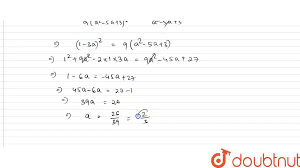 9(a²-5a+3)²   a²-5a+3
⇒ (1-3a)² = 9(a²-5a+3)
⇒ 1²+9a²-2×1×3a = 9a²-45a+27
⇒ 1-6a = -45a+27
⇒ 45a-6a = 27-1
⇒ 39a = 26
⇒ a = 26/39 = 2/3
doubtnut